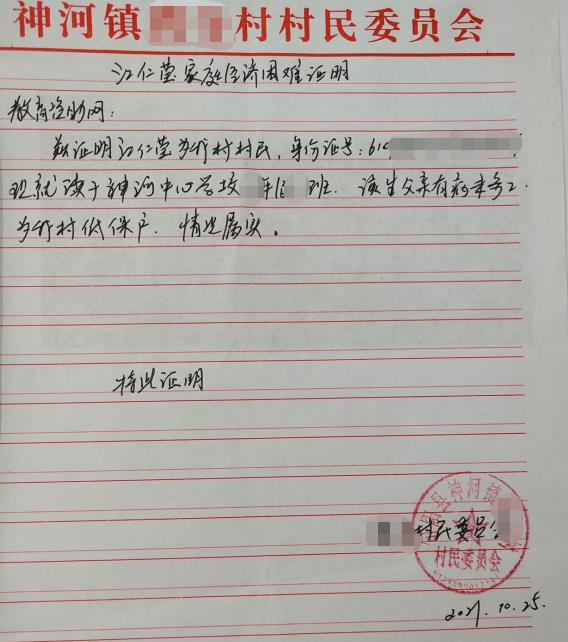 神河镇 村村民委员会
江仁莹家庭经济困难证明
教育资助网：
兹证明江仁莹为我村村民，身份证号：61
现就读于神河中心学校 年级 班．该生父亲有病未务工．
为我村低保户．情况属实。
特此证明
村民委员会
县神河镇
村民委员会
2021.10.25.